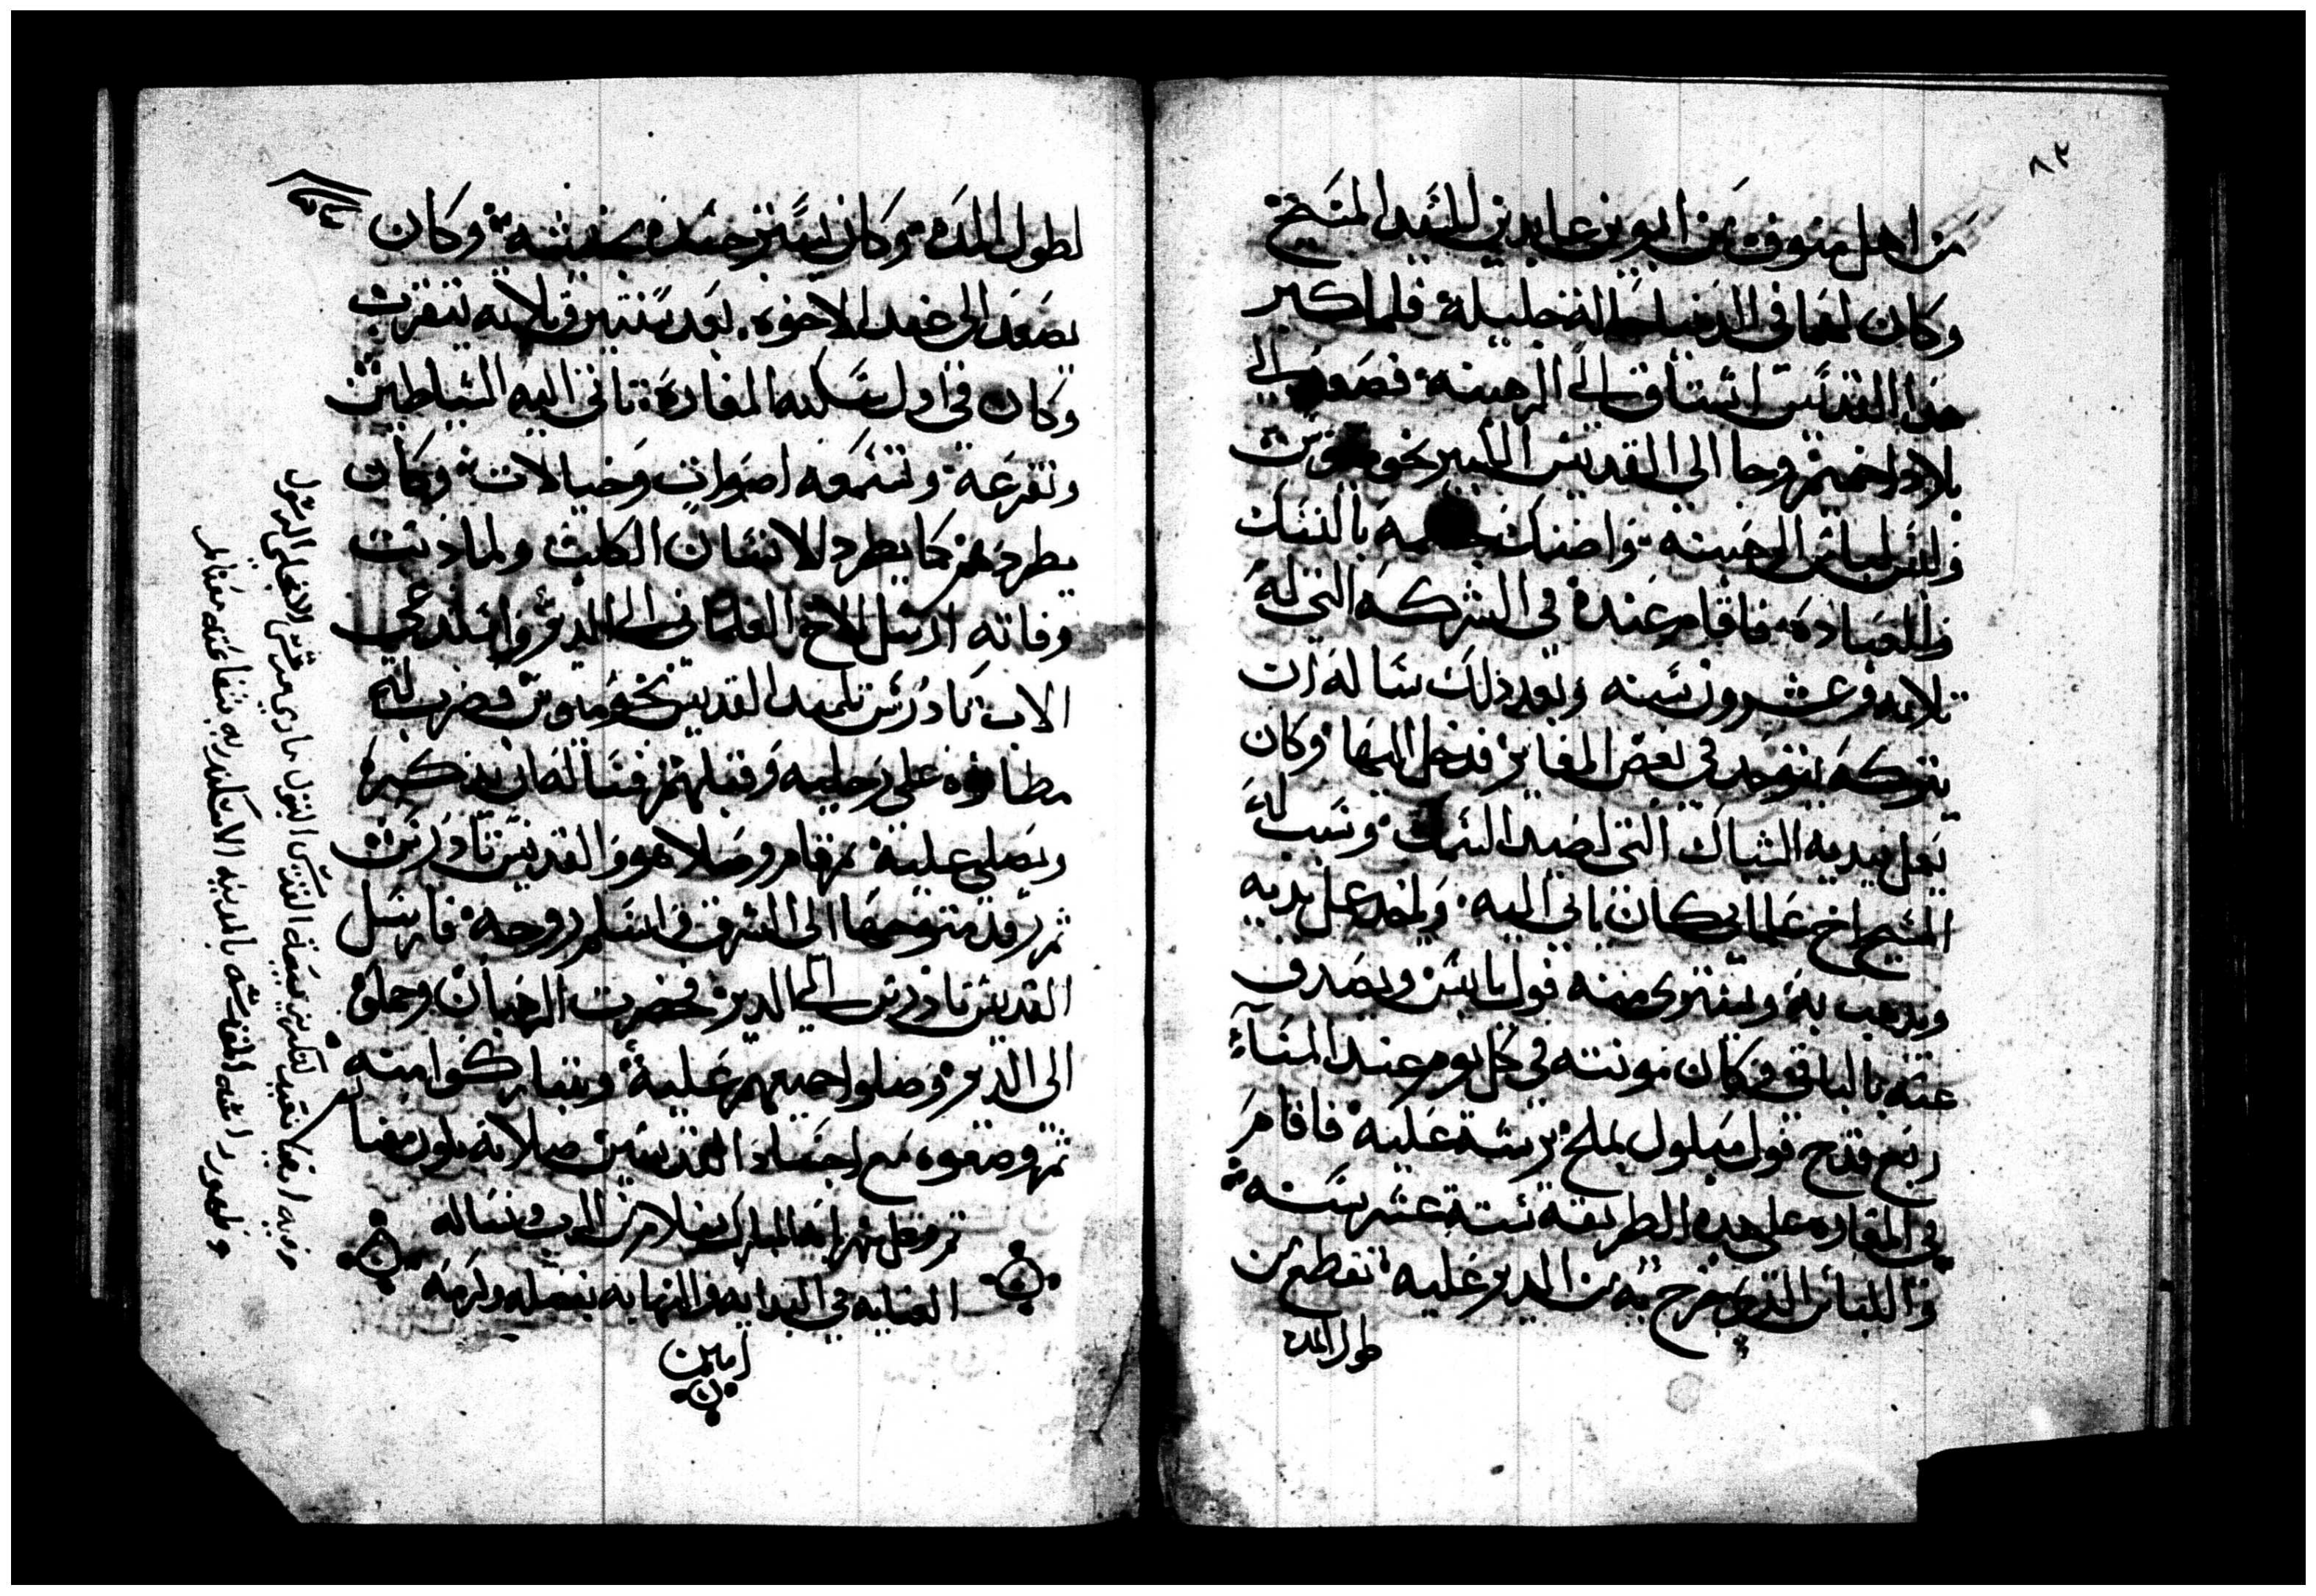 ٨٢
من اهل منوف من ابوين عابدين للسيد المسيح
وكان لهما في الدنيا حاله جليلة فلما كبر
هذا القديس اشتاق الى الرهبنه فصعد الى
بلاد اخميم وجا الى القديس الكبير بخوميوس
ولبس لباس الرهبنه واضنك جسمه بالنسك
والعباده فاقام عنده في الشركه التى له
ثلاثه وعشرون سنه وبعد ذلك ساله ان
يتركه يتوحد في بعض المغاير فدخل اليها وكان
يعمل بيديه الشباك التي لصيد السمك وسبب له
المسيح اخ علمانى كان ياتى اليه وياخذ عمل يديه
ويذهب به ويشترى منه فول يابس ويصدق
عنه بالباقى وكان مونته في كل يوم عند المساء
ربع قدح فول مبلول بملح يرشه عليه فاقام
في المغاره على هذه الطريقه ستة عشر سنه
واللباس الذى خرج به من الدير عليه تقطع من
طول المده
لطول المده وكان يستر جسده بخيشه وكان
يصعد الى عند الاخوه بعد سنتين ثلاثه يتقرب
وكان في اول سكنه المغاره تاتى اليه الشياطين
وتفزعه وتسمعه اصوات وخيالات وكان
يطردهم كما يطرد الانسان الكلب ولما دنت
وفاته ارسل الاخ العلمانى الى الدير واستدعى
الاب تادرس تلميد القديس بخوميوس فضرب له
مطانوه على رجليه وقبلهم فساله ان يذكره
ويصلى عليه ثم قام وصلا هو والقديس تاودرس
ثم رقد متوجها الى الشرق فاسلم روحه فارسل
القديس تاودرس الى الدير فحضرت الرهبان وحملوه
الى الدير وصلوا جميعهم عليه وتباركوا منه
ثم وضعوه مع اجساد القديسين صلاته تكون معنا
تم وكمل شهر ابه المبارك بسلام من الرب ونساله
العنايه في البدايه والنهايه بفضله وكرمه
امين
وفيه ايضا تعييد لتكريز بيعة القديس البتول مارى مرقس الانجيلى الرسول
وظهور راسه المقدسه بالمدينه الاسكندريه شفاعته معنا امين